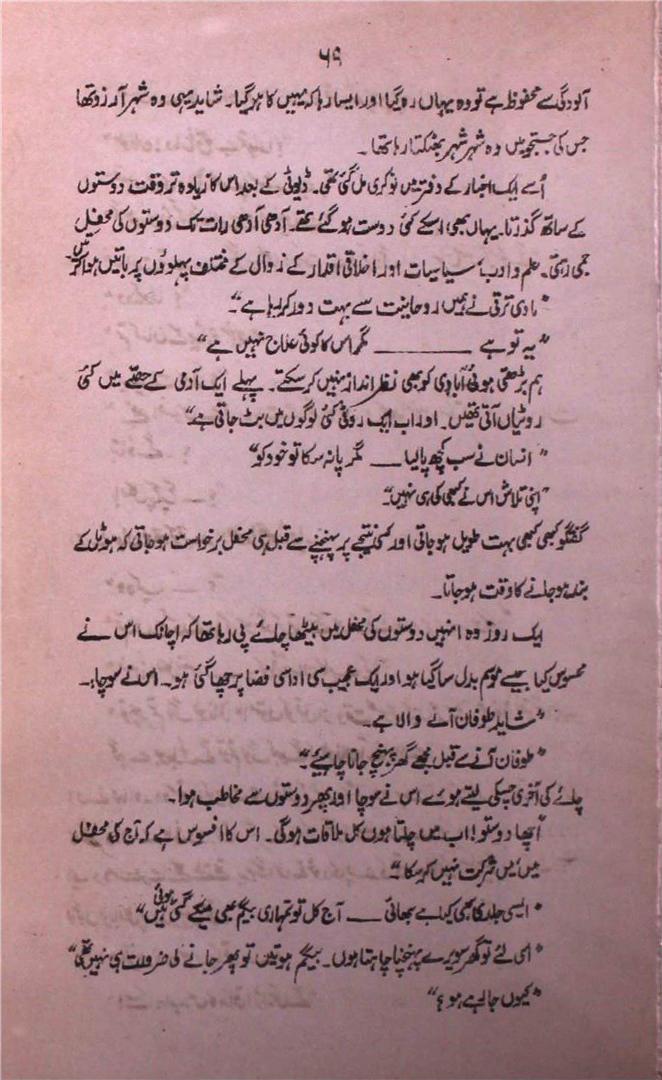 ۶۹
آلودگی سے محفوظ ہے تو وہ یہاں رہ گیا اور ایسا رہا کہ یہیں کا ہو گیا۔ شاید یہی وہ شہر آرزو تھا
جس کی جستجو میں وہ شہر شہر بھٹکتا رہا تھا۔
اُسے ایک اخبار کے دفتر میں نوکری مل گئی تھی۔ ڈیوٹی کے بعد اس کا زیادہ تر وقت دوستوں
کے ساتھ گذرتا۔ یہاں بھی اسکے کئی دوست ہو گئے تھے۔ آدھی آدھی رات تک دوستوں کی محفل
جمی رہتی۔ علم و ادب، سیاسیات اور اخلاقی اقدار کے زوال کے مختلف پہلوؤں پر باتیں ہوا کرتیں۔
"مادی ترقی نے ہمیں روحانیت سے بہت دور کر دیا ہے"۔
"یہ تو ہے ـــــــــ مگر اس کا کوئی علاج نہیں ہے"
ہم بڑھتی ہوئی آبادی کو بھی نظر انداز نہیں کر سکتے۔ پہلے ایک آدمی کے حصّے میں کئی
روٹیاں آتی تھیں۔ اور اب ایک روٹی کئی لوگوں میں بٹ جاتی ہے"
"انسان نے سب کچھ پا لیا ـــــ مگر پا نہ سکا تو خود کو"
"اپنی تلاش اس نے کبھی کی ہی نہیں"۔
گفتگو کبھی کبھی بہت طویل ہو جاتی اور کسی نتیجے پر پہنچنے سے قبل ہی محفل برخواست ہو جاتی کہ ہوٹل کے
بند ہو جانے کا وقت ہو جاتا۔
ایک روز وہ انہیں دوستوں کی محفل میں بیٹھا چائے پی رہا تھا کہ اچانک اس نے
محسوس کیا جیسے موسم بدل سا گیا ہو اور ایک عجیب سی اداسی فضا پر چھا گئی ہو۔ اس نے سوچا۔
"شاید طوفان آنے والا ہے۔
"طوفان آنے سے قبل مجھے گھر پہنچ جانا چاہیئے"۔
چائے کی آخری چسکی لیتے ہوئے اس نے سوچا اور پھر دوستوں سے مخاطب ہوا۔
اچھا دوستو! اب میں چلتا ہوں کل ملاقات ہوگی۔ اس کا افسوس ہے کہ آج کی محفل
میں میں شرکت نہیں کر سکا"۔
"ایسی جلد کا بھی کیا ہے بھائی ـــــ آج کل تو تمہاری بیگم بھی میکے گئی ہوئی ہیں"
"اسی لئے تو گھر سویرے پہنچنا چاہتا ہوں۔ بیگم ہوتیں تو پھر جانے کی ضرورت ہی نہیں تھی"
"کیوں جا رہے ہو؟"